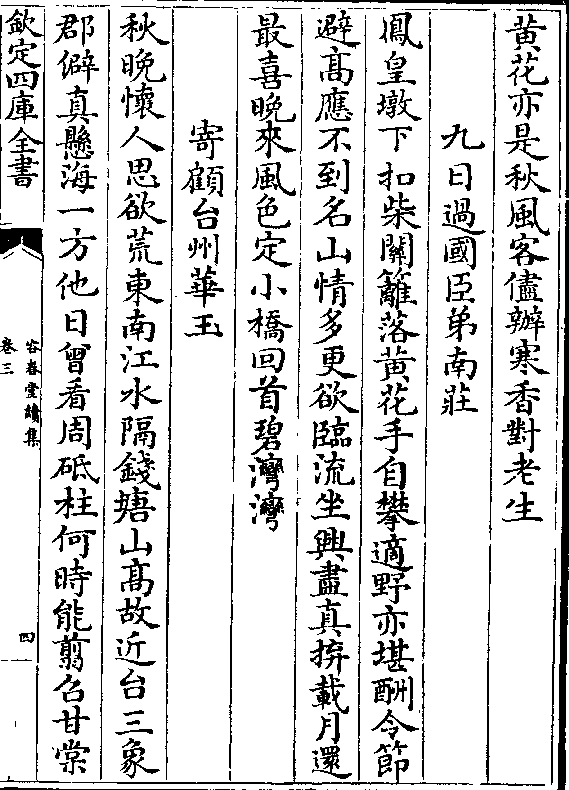 黄花亦是秋風客儘辦寒香對老生
九日過國臣弟南莊
鳳皇墩下扣柴關籬落黄花手自攀適野亦堪酬令節
避髙應不到名山情多更欲臨流坐興盡真拚載月還
最喜晩來風色定小橋回首碧灣灣
寄顧台州華玉
秋晩懷人思欲荒東南江水隔錢塘山髙故近台三象
郡僻真懸海一方他日曾看周砥柱何時能翦召甘棠
欽定四庫全書
容春堂續集
卷三
四